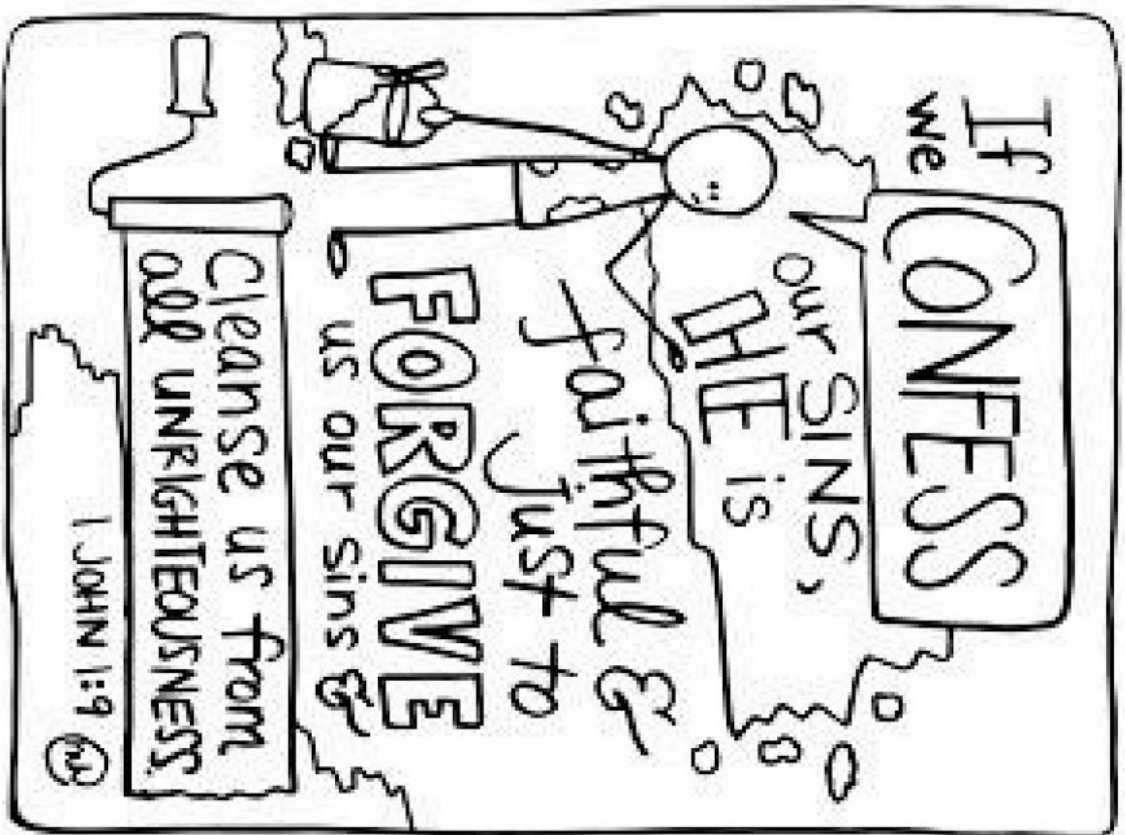 If
we
CONFESS
our SINS,
HE is
faithful &
Just to
FORGIVE
us our sins &
Cleanse us from
all UNRIGHTEOUSNESS.
1 JOHN 1:9